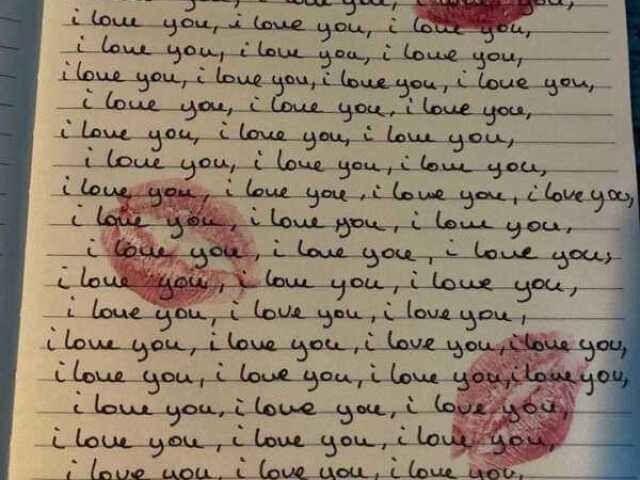 you, i love you, i love you,
i love you, i love you, i love you,
i love you, i love you, i love you,
i love you, i love you, i love you, i love you,
i love you, i love you, i love you,
i love you, i love you, i love you,
i love you, i love you, i love you,
i love you, i love you, i love you, i love you,
i love you, i love you, i love you,
i love you, i love you, i love you,
i love you, i love you, i love you,
i love you, i love you, i love you,
i love you, i love you, i love you, i love you,
i love you, i love you, i love you, i love you,
i love you, i love you, i love you,
i love you, i love you, i love you,
i love you, i love you, i love you,